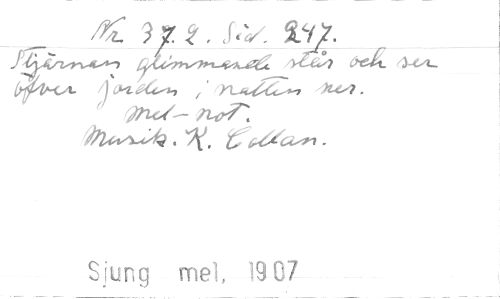 Nr 37.2. Sid. 247.
Stjärnan glimmande står och ser
öfver jorden i natten ner.
Mel-not.
Musik. K. Collan.
Sjung mel, 1907